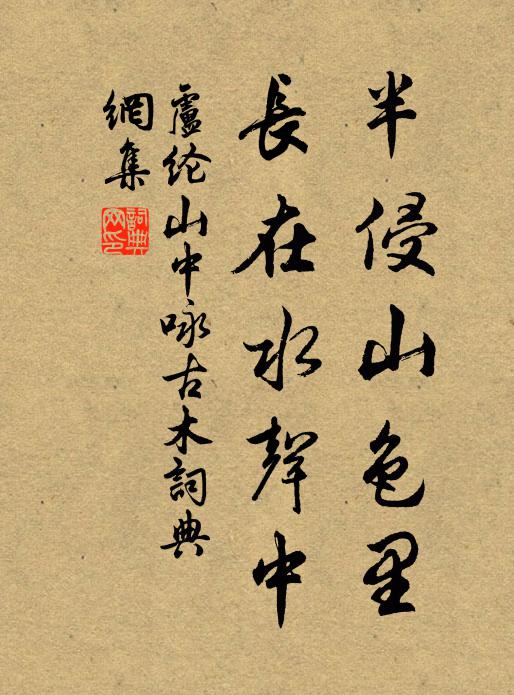 半侵山色里
長在水聲中
盧纶山中咏古木詞典
網集
詞典
网印